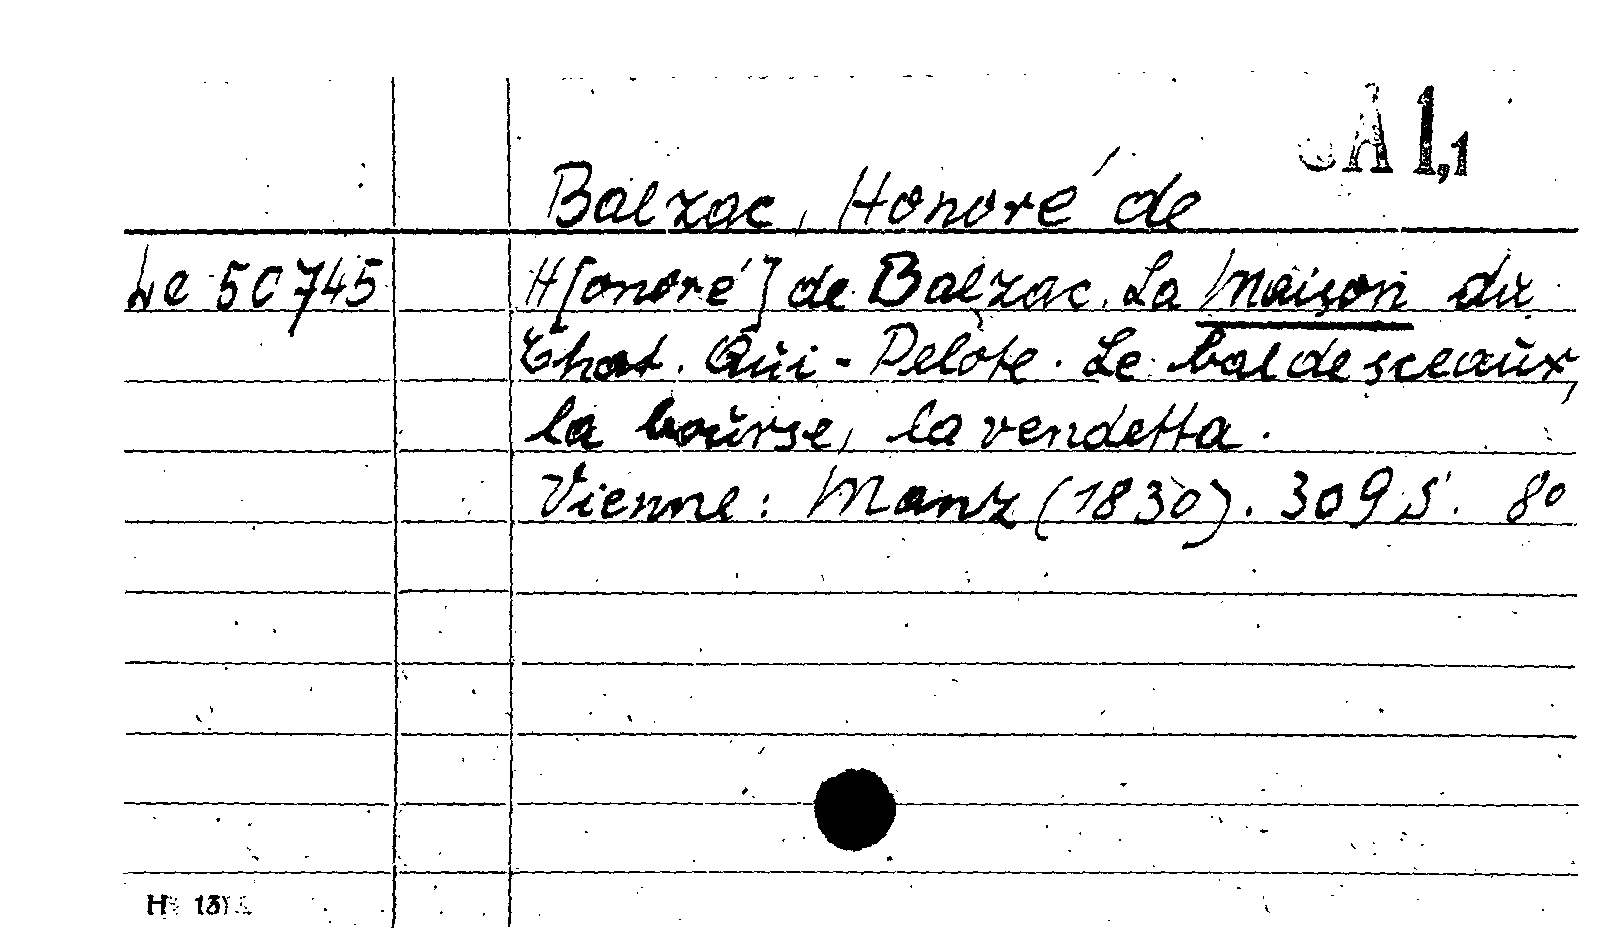 A 1,1
Balzac, Honoré de
Le 50745
H[onoré] de Balzac. La Maison du
Chat. Qui-Pelote. Le bal de sceaux,
la bourse, la vendetta.
Vienne: Manz (1830). 309 S. 8o